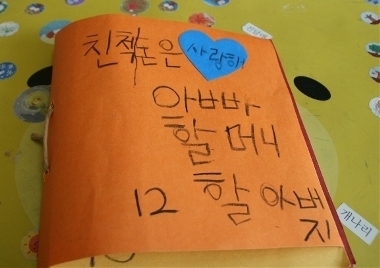 친척은 사랑해
아빠
할머니
12 할아버지
개나리